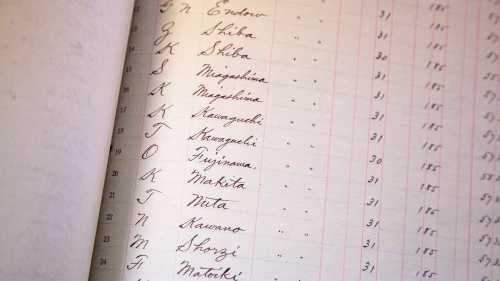 G N Endow " " 31 185
13 G Shiba " " 31 185
14 K Shiba " " 30 185
15 S Miagashima " " 31 185
16 K Miagashima " " 31 185
17 K Kawaguchi " " 31 185
18 T Kawaguchi " " 31 185
19 O Fujinawa " " 30 185
20 K Makita " " 31 185
21 T Nuta " " 31 185
22 N Kawano " " 31 185
23 M Shorzi " " 31 185
24 " " 31 185